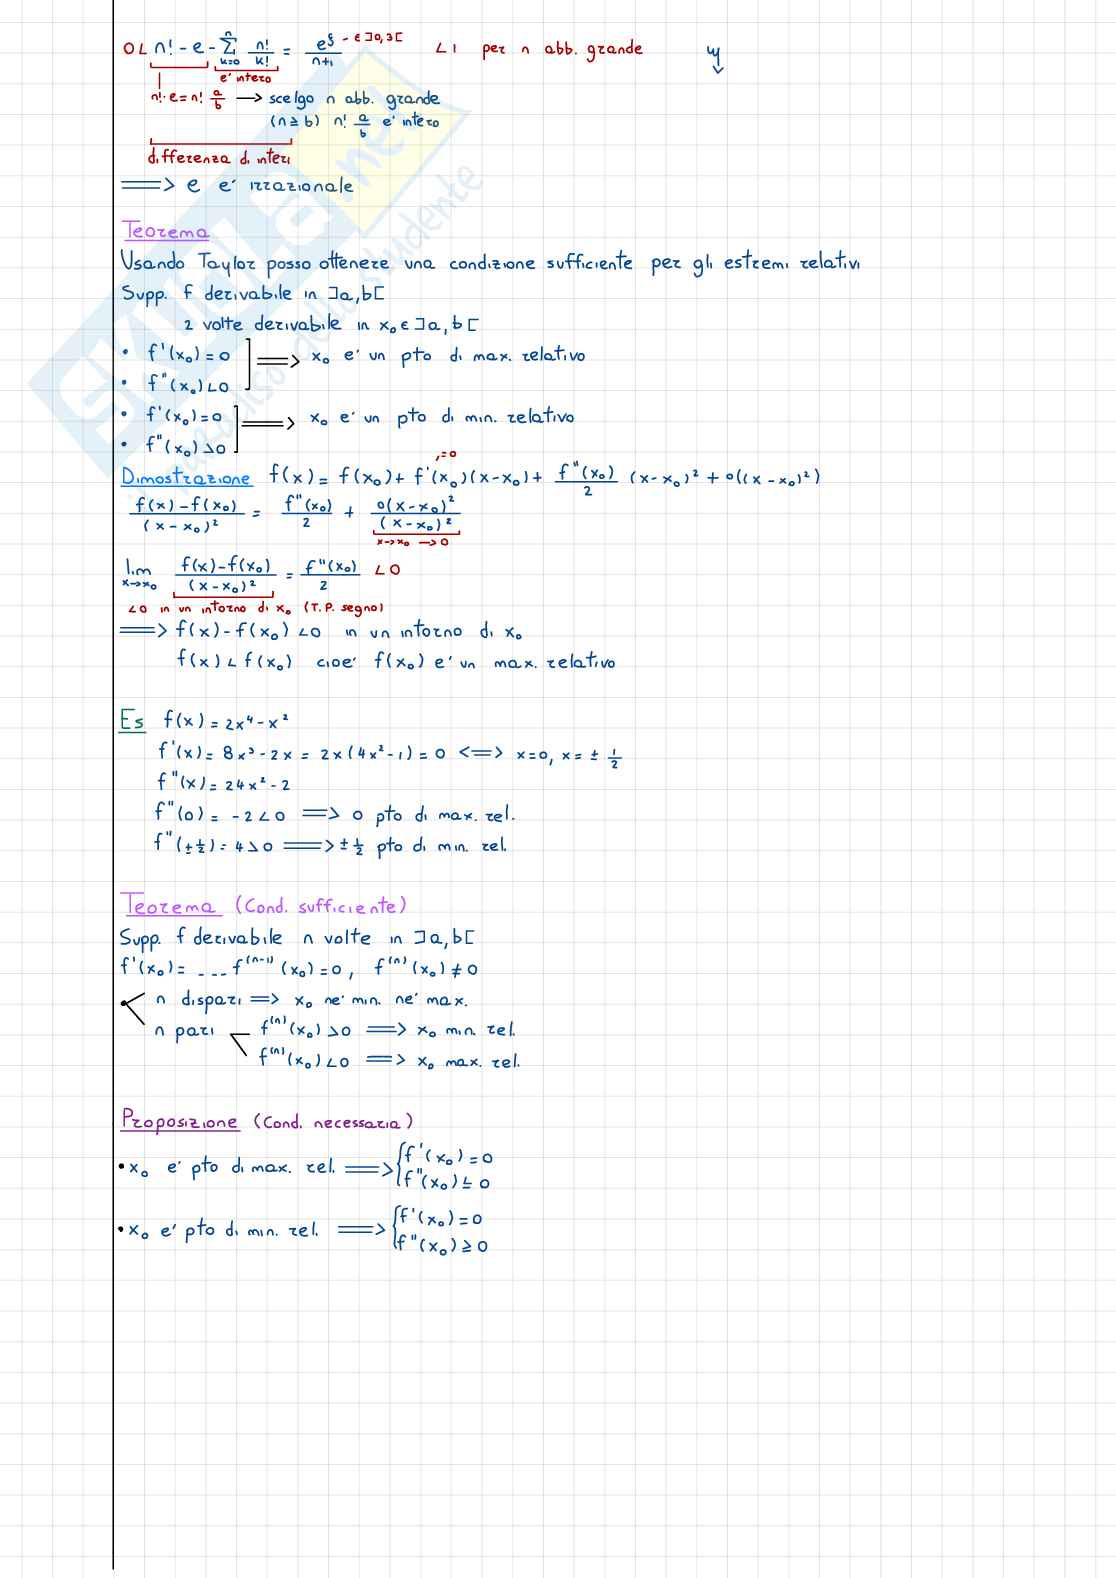 0 < n! - e - Σ_{k=0}^{n} n!/k! = e^ξ/(n+1) - ∈ ]0,3[ < 1 per n abb. grande
e' intero
n!·e = n! a/b → scelgo n abb. grande
(n ≥ b) n! a/b e' intero
differenza di interi
⟹ e e' irrazionale
Teorema
Usando Taylor posso ottenere una condizione sufficiente per gli estremi relativi
Supp. f derivabile in ]a,b[
2 volte derivabile in x₀ ∈ ]a,b[
• f'(x₀) = 0 ⟹ x₀ e' un pto di max. relativo
• f''(x₀) < 0
• f'(x₀) = 0 ⟹ x₀ e' un pto di min. relativo
• f''(x₀) > 0
= 0
Dimostrazione f(x) = f(x₀) + f'(x₀)(x-x₀) + f''(x₀)/2 (x-x₀)² + o((x-x₀)²)
(f(x) - f(x₀))/(x-x₀)² = f''(x₀)/2 + o(x-x₀)²/(x-x₀)²
x→x₀ → 0
lim_{x→x₀} (f(x) - f(x₀))/(x-x₀)² = f''(x₀)/2 < 0
< 0 in un intorno di x₀ (T.P. segno)
⟹ f(x) - f(x₀) < 0 in un intorno di x₀
f(x) < f(x₀) cioe' f(x₀) e' un max. relativo
Es f(x) = 2x⁴ - x²
f'(x) = 8x³ - 2x = 2x(4x² - 1) = 0 ⟺ x = 0, x = ± 1/2
f''(x) = 24x² - 2
f''(0) = -2 < 0 ⟹ 0 pto di max. rel.
f''(± 1/2) = 4 > 0 ⟹ ± 1/2 pto di min. rel.
Teorema (Cond. sufficiente)
Supp. f derivabile n volte in ]a,b[
f'(x₀) = ... f⁽ⁿ⁻¹⁾(x₀) = 0, f⁽ⁿ⁾(x₀) ≠ 0
n dispari ⟹ x₀ ne' min. ne' max.
n pari f⁽ⁿ⁾(x₀) > 0 ⟹ x₀ min. rel.
f⁽ⁿ⁾(x₀) < 0 ⟹ x₀ max. rel.
Proposizione (Cond. necessaria)
• x₀ e' pto di max. rel. ⟹ { f'(x₀) = 0
f''(x₀) ≤ 0
• x₀ e' pto di min. rel. ⟹ { f'(x₀) = 0
f''(x₀) ≥ 0